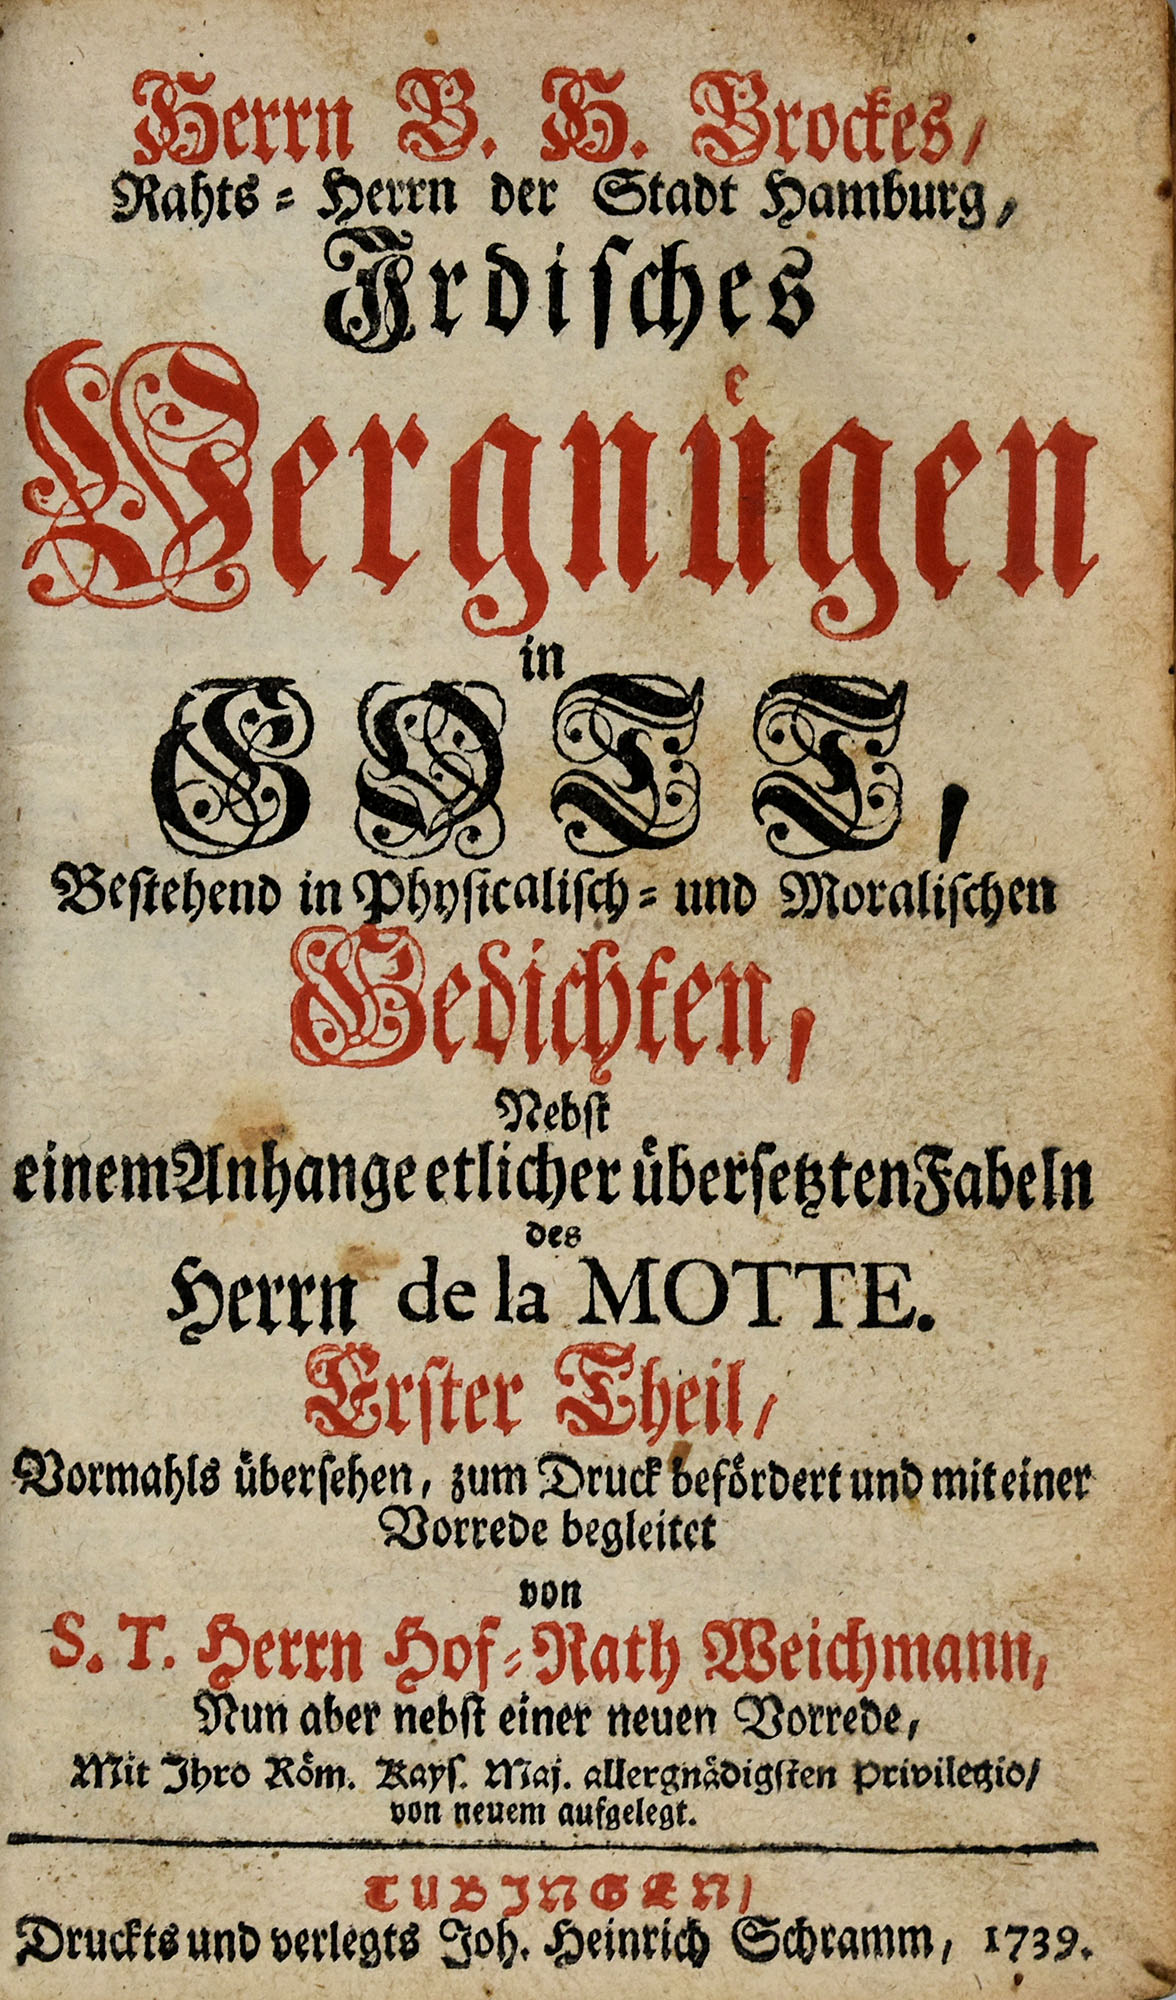 Herrn B. H. Brockes/
Rahts-Herrn der Stadt Hamburg,
Irdisches
Vergnügen
in
GOTT,
Bestehend in Physicalisch- und Moralischen
Gedichten,
Nebst
einem Anhange etlicher übersetzten Fabeln
des
Herrn de la MOTTE.
Erster Theil/
Vormahls übersehen, zum Druck befördert und mit einer
Vorrede begleitet
von
S. T. Herrn Hof-Rath Weichmann,
Nun aber nebst einer neuen Vorrede,
Mit Ihro Röm. Kays. Maj. allergnädigsten Privilegio/
von neuem aufgelegt.
TUBINGEN/
Druckts und verlegts Joh. Heinrich Schramm, 1739.